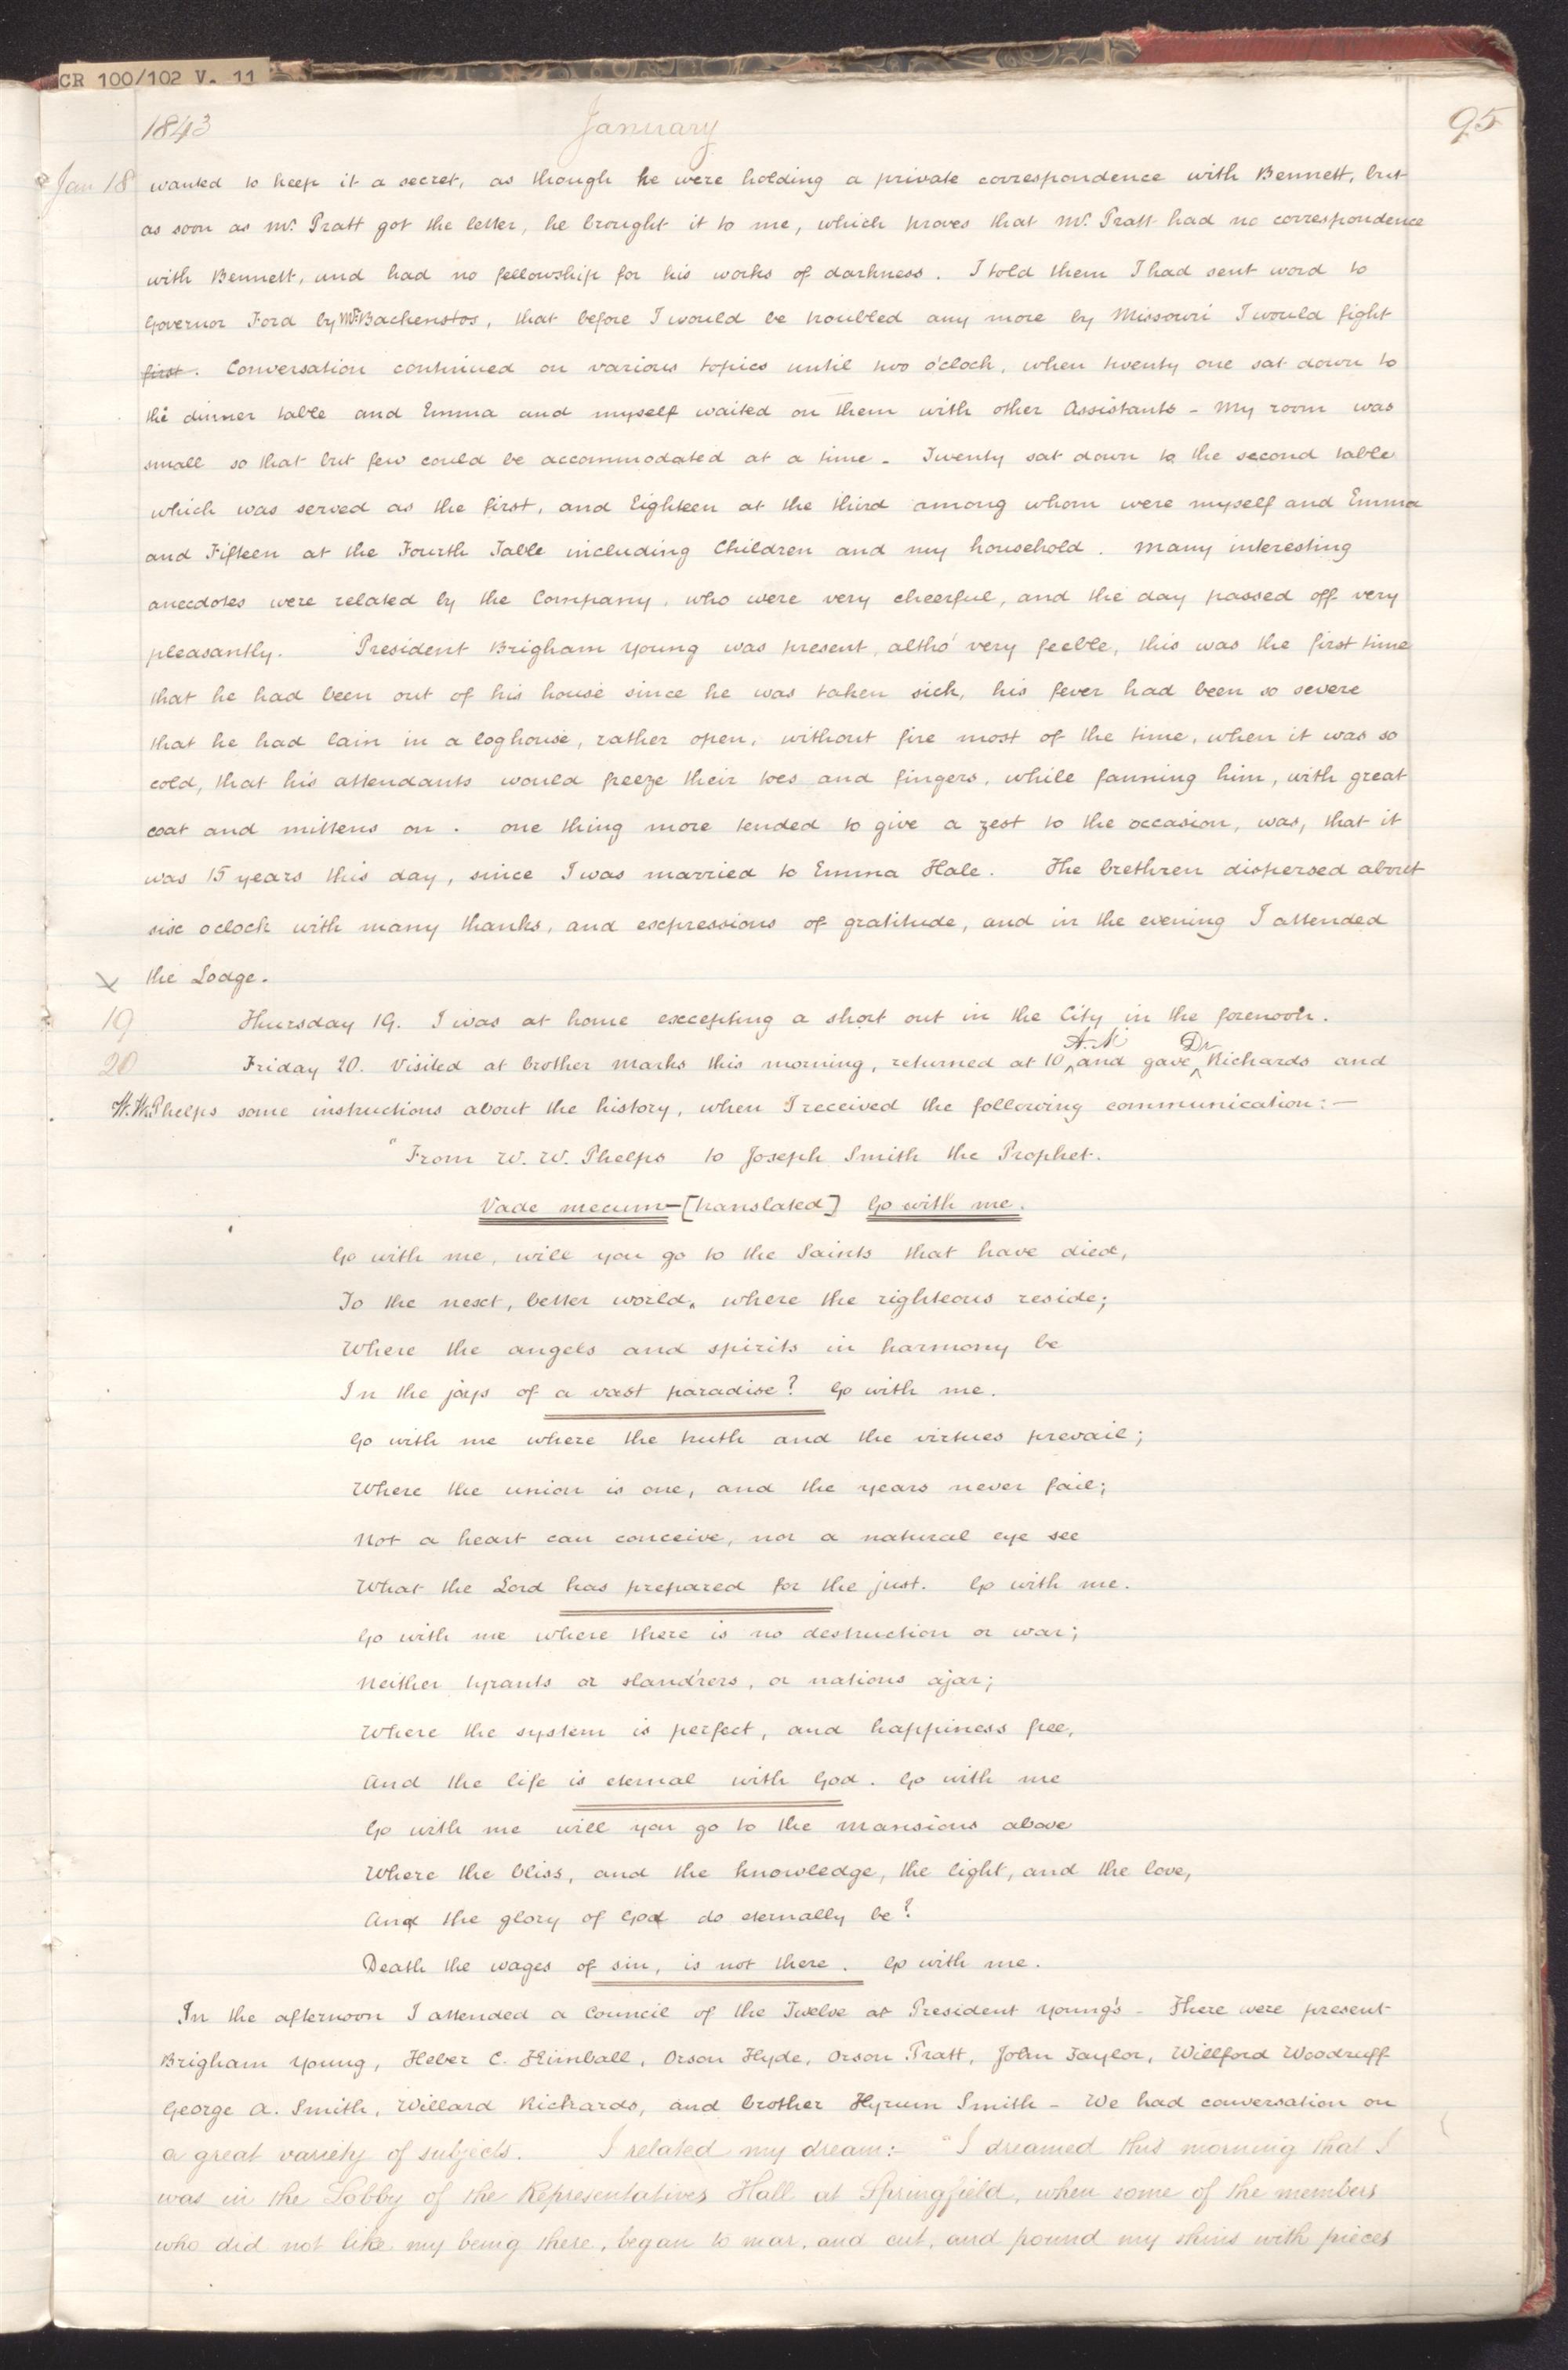 CR 100/102 V. 11
1843 January 95
Jan 18 wanted to keep it a secret, as though he were holding a private correspondence with Bennett, but
as soon as Mr. Pratt got the letter, he brought it to me, which proves that Mr. Pratt had no correspondence
with Bennett, and had no fellowship for his works of darkness. I told them I had sent word to
Governor Ford by Mr. Backenstos, that before I would be troubled any more by Missouri I would fight
first. Conversation continued on various topics until two o'clock, when twenty one sat down to
the dinner table and Emma and myself waited on them with other Assistants - My room was
small so that but few could be accommodated at a time - Twenty sat down to the second table
which was served as the first, and Eighteen at the third among whom were myself and Emma
and Fifteen at the Fourth Table including Children and my household. Many interesting
anecdotes were related by the Company, who were very cheerful, and the day passed off very
pleasantly. President Brigham Young was present, altho' very feeble, this was the first time
that he had been out of his house since he was taken sick, his fever had been so severe
that he had lain in a log house, rather open, without fire most of the time, when it was so
cold, that his attendants would freeze their toes and fingers, while fanning him, with great
coat and mittens on. One thing more tended to give a zest to the occasion, was, that it
was 15 years this day, since I was married to Emma Hale. The brethren dispersed about
six oclock with many thanks, and expressions of gratitude, and in the evening I attended
the Lodge.
19 Thursday 19. I was at home excepting a short out in the City in the forenoon.
20 Friday 20. Visited at brother Marks this morning, returned at 10 A.M. and gave Dr Richards and
W. W. Phelps some instructions about the history, when I received the following communication:—
"From W. W. Phelps to Joseph Smith the Prophet.
Vade mecum—[translated] Go with me.
Go with me, will you go to the Saints that have died,
To the next, better world, where the righteous reside;
Where the angels and spirits in harmony be
In the joys of a vast paradise? Go with me.
Go with me where the truth and the virtues prevail;
Where the union is one, and the years never fail;
Not a heart can conceive, nor a natural eye see
What the Lord has prepared for the just. Go with me.
Go with me where there is no destruction or war;
Neither tyrants or sland'rers, or nations ajar;
Where the system is perfect, and happiness free,
And the life is eternal with God. Go with me
Go with me will you go to the mansions above
Where the bliss, and the knowledge, the light, and the love,
And the glory of God do eternally be?
Death the wages of sin, is not there. Go with me.
In the afternoon I attended a Council of the Twelve at President Young's - There were present
Brigham Young, Heber C. Kimball, Orson Hyde, Orson Pratt, John Taylor, Willford Woodruff
George A. Smith, Willard Richards, and brother Hyrum Smith - We had conversation on
a great variety of subjects. I related my dream:- "I dreamed this morning that I
was in the Lobby of the Representatives Hall at Springfield, when some of the members
who did not like my being there, began to mar, and cut, and pound my shins with pieces